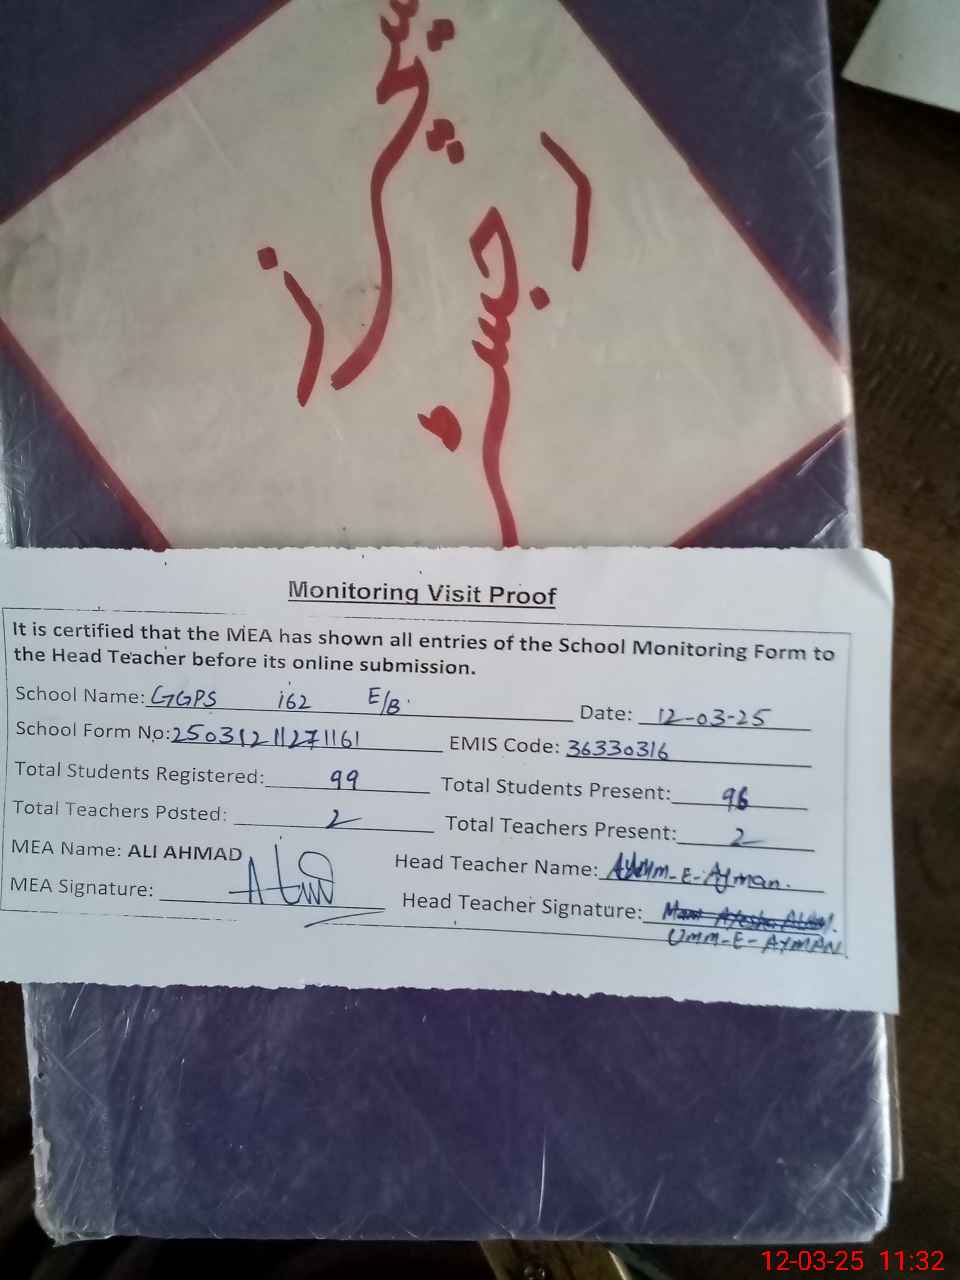 Monitoring Visit Proof
It is certified that the MEA has shown all entries of the School Monitoring Form to
the Head Teacher before its online submission.
School Name: GGPS 162 E/B Date: 12-03-25
School Form No: 25031211271161 EMIS Code: 36330316
Total Students Registered: 99 Total Students Present: 96
Total Teachers Posted: 2 Total Teachers Present: 2
MEA Name: ALI AHMAD Head Teacher Name: -E-Ayman.
MEA Signature: Head Teacher Signature:
UMM-E-AYMAN
12-03-25 11:32